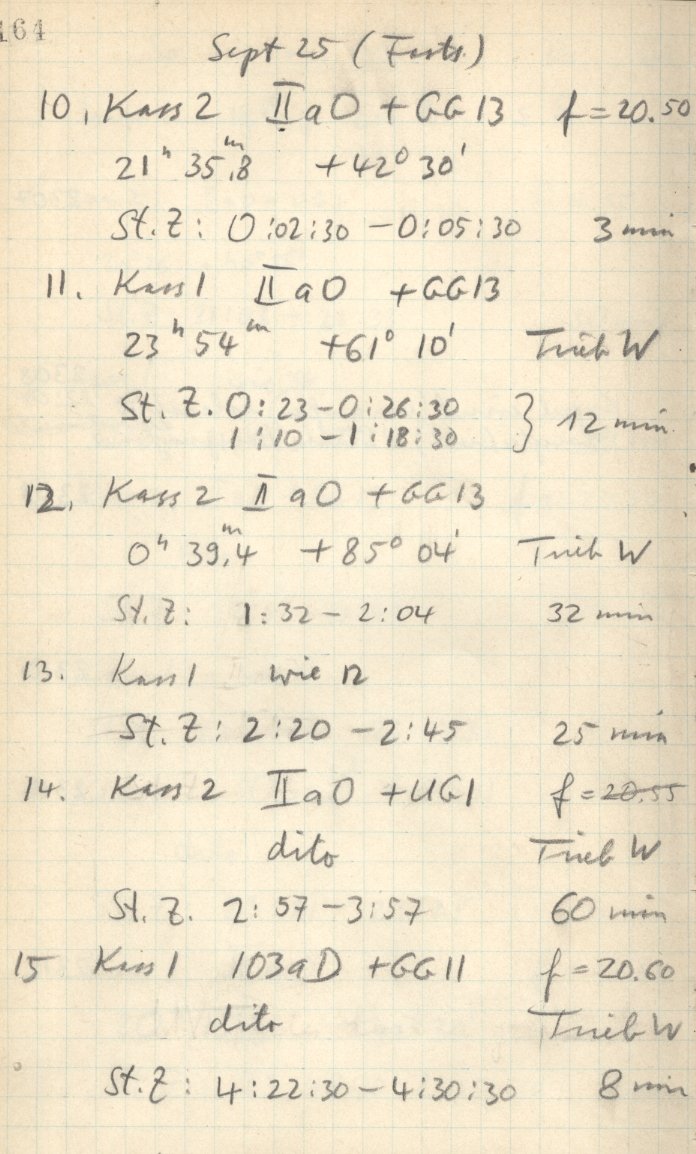 164
Sept 25 (Forts.)
10, Kass 2 II a O + GG 13 f = 20.50
21h 35m,8 +42° 30'
St. Z: 0:02:30 - 0:05:30 3 min
11. Kass 1 II a O + GG13
23h 54m +61° 10' Trieb W
St. Z. 0:23 - 0:26:30 } 12 min
1:10 - 1:18:30
12. Kass 2 II a O + GG 13
0h 39m,4 +85° 04' Trieb W
St. Z: 1:32 - 2:04 32 min
13. Kass 1 wie 12
St. Z: 2:20 - 2:45 25 min
14. Kass 2 II a O + UG1 f = 20.55
dito Trieb W
St. Z. 2:57 - 3:57 60 min
15 Kass 1 103aD + GG 11 f = 20.60
dito Trieb W
St. Z: 4:22:30 - 4:30:30 8 min